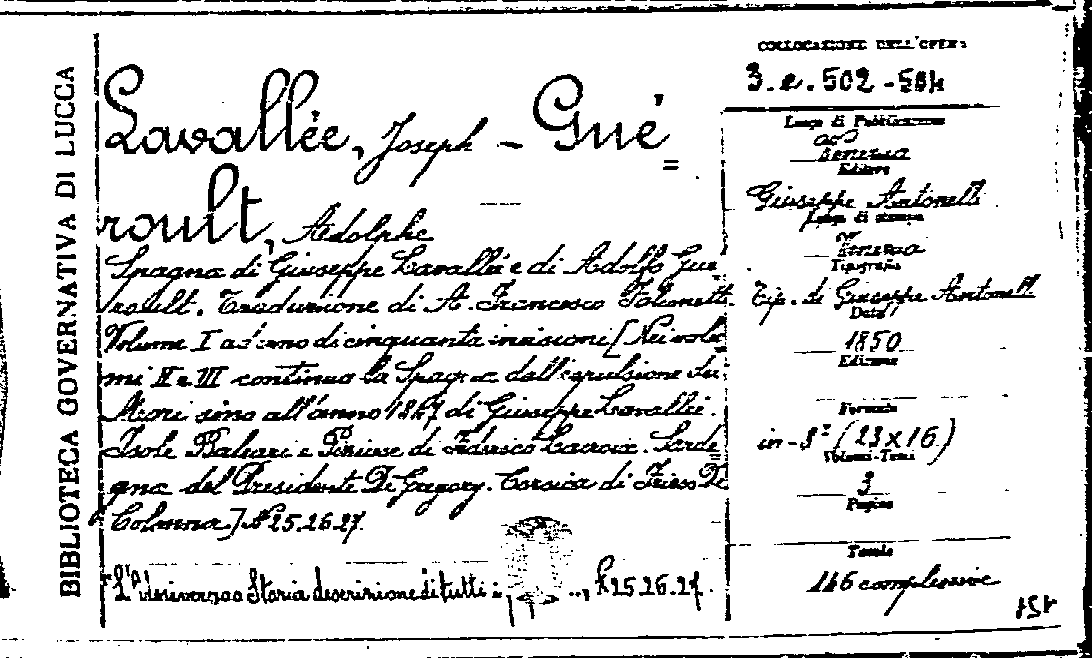 BIBLIOTECA GOVERNATIVA DI LUCCA
Lavallée, Joseph - Gué=
roult, Adolphe
Spagna di Giuseppe Lavallée e di Adolfo Gue
roult. Traduzione di A. Francesco Falconetti.
Volume I adorno di cinquanta incisioni [Nei volu
mi II e III continua la Spagna dall'espulsione dei
Mori sino all'anno 1847 di Giuseppe Lavallée.
Isole Baleari e Pitiuse di Federico Lacroix. Sarde
gna del Presidente De Gregory. Corsica di Friess De
Colonna] N 25.26.27.
L'Universo o Storia descrizione di tutti i ..., N 25.26.27.
COLLOCAZIONE DELL'OPERA
3.e.502-504
Luogo di Pubblicazione
Venezia
Editore
Giuseppe Antonelli
Luogo di stampa
Venezia
Tipografia
Tip. di Giuseppe Antonelli
Data
1850
Edizione
Formato
in-8° (23x16)
Volumi-Tomi
3
Pagine
Tavole
146 complessive
151